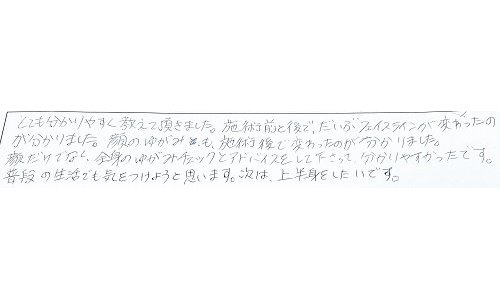 とても分かりやすく教えて頂きました。施術前と後で、だいぶフェイスラインが変わったの
が分かりました。顔のゆがみも、施術後で変わったのが分かりました。
顔だけでなく、全身のゆがみチェックとアドバイスをして下さって、分かりやすかったです。
普段の生活でも気をつけようと思います。次は、上半身をしたいです。